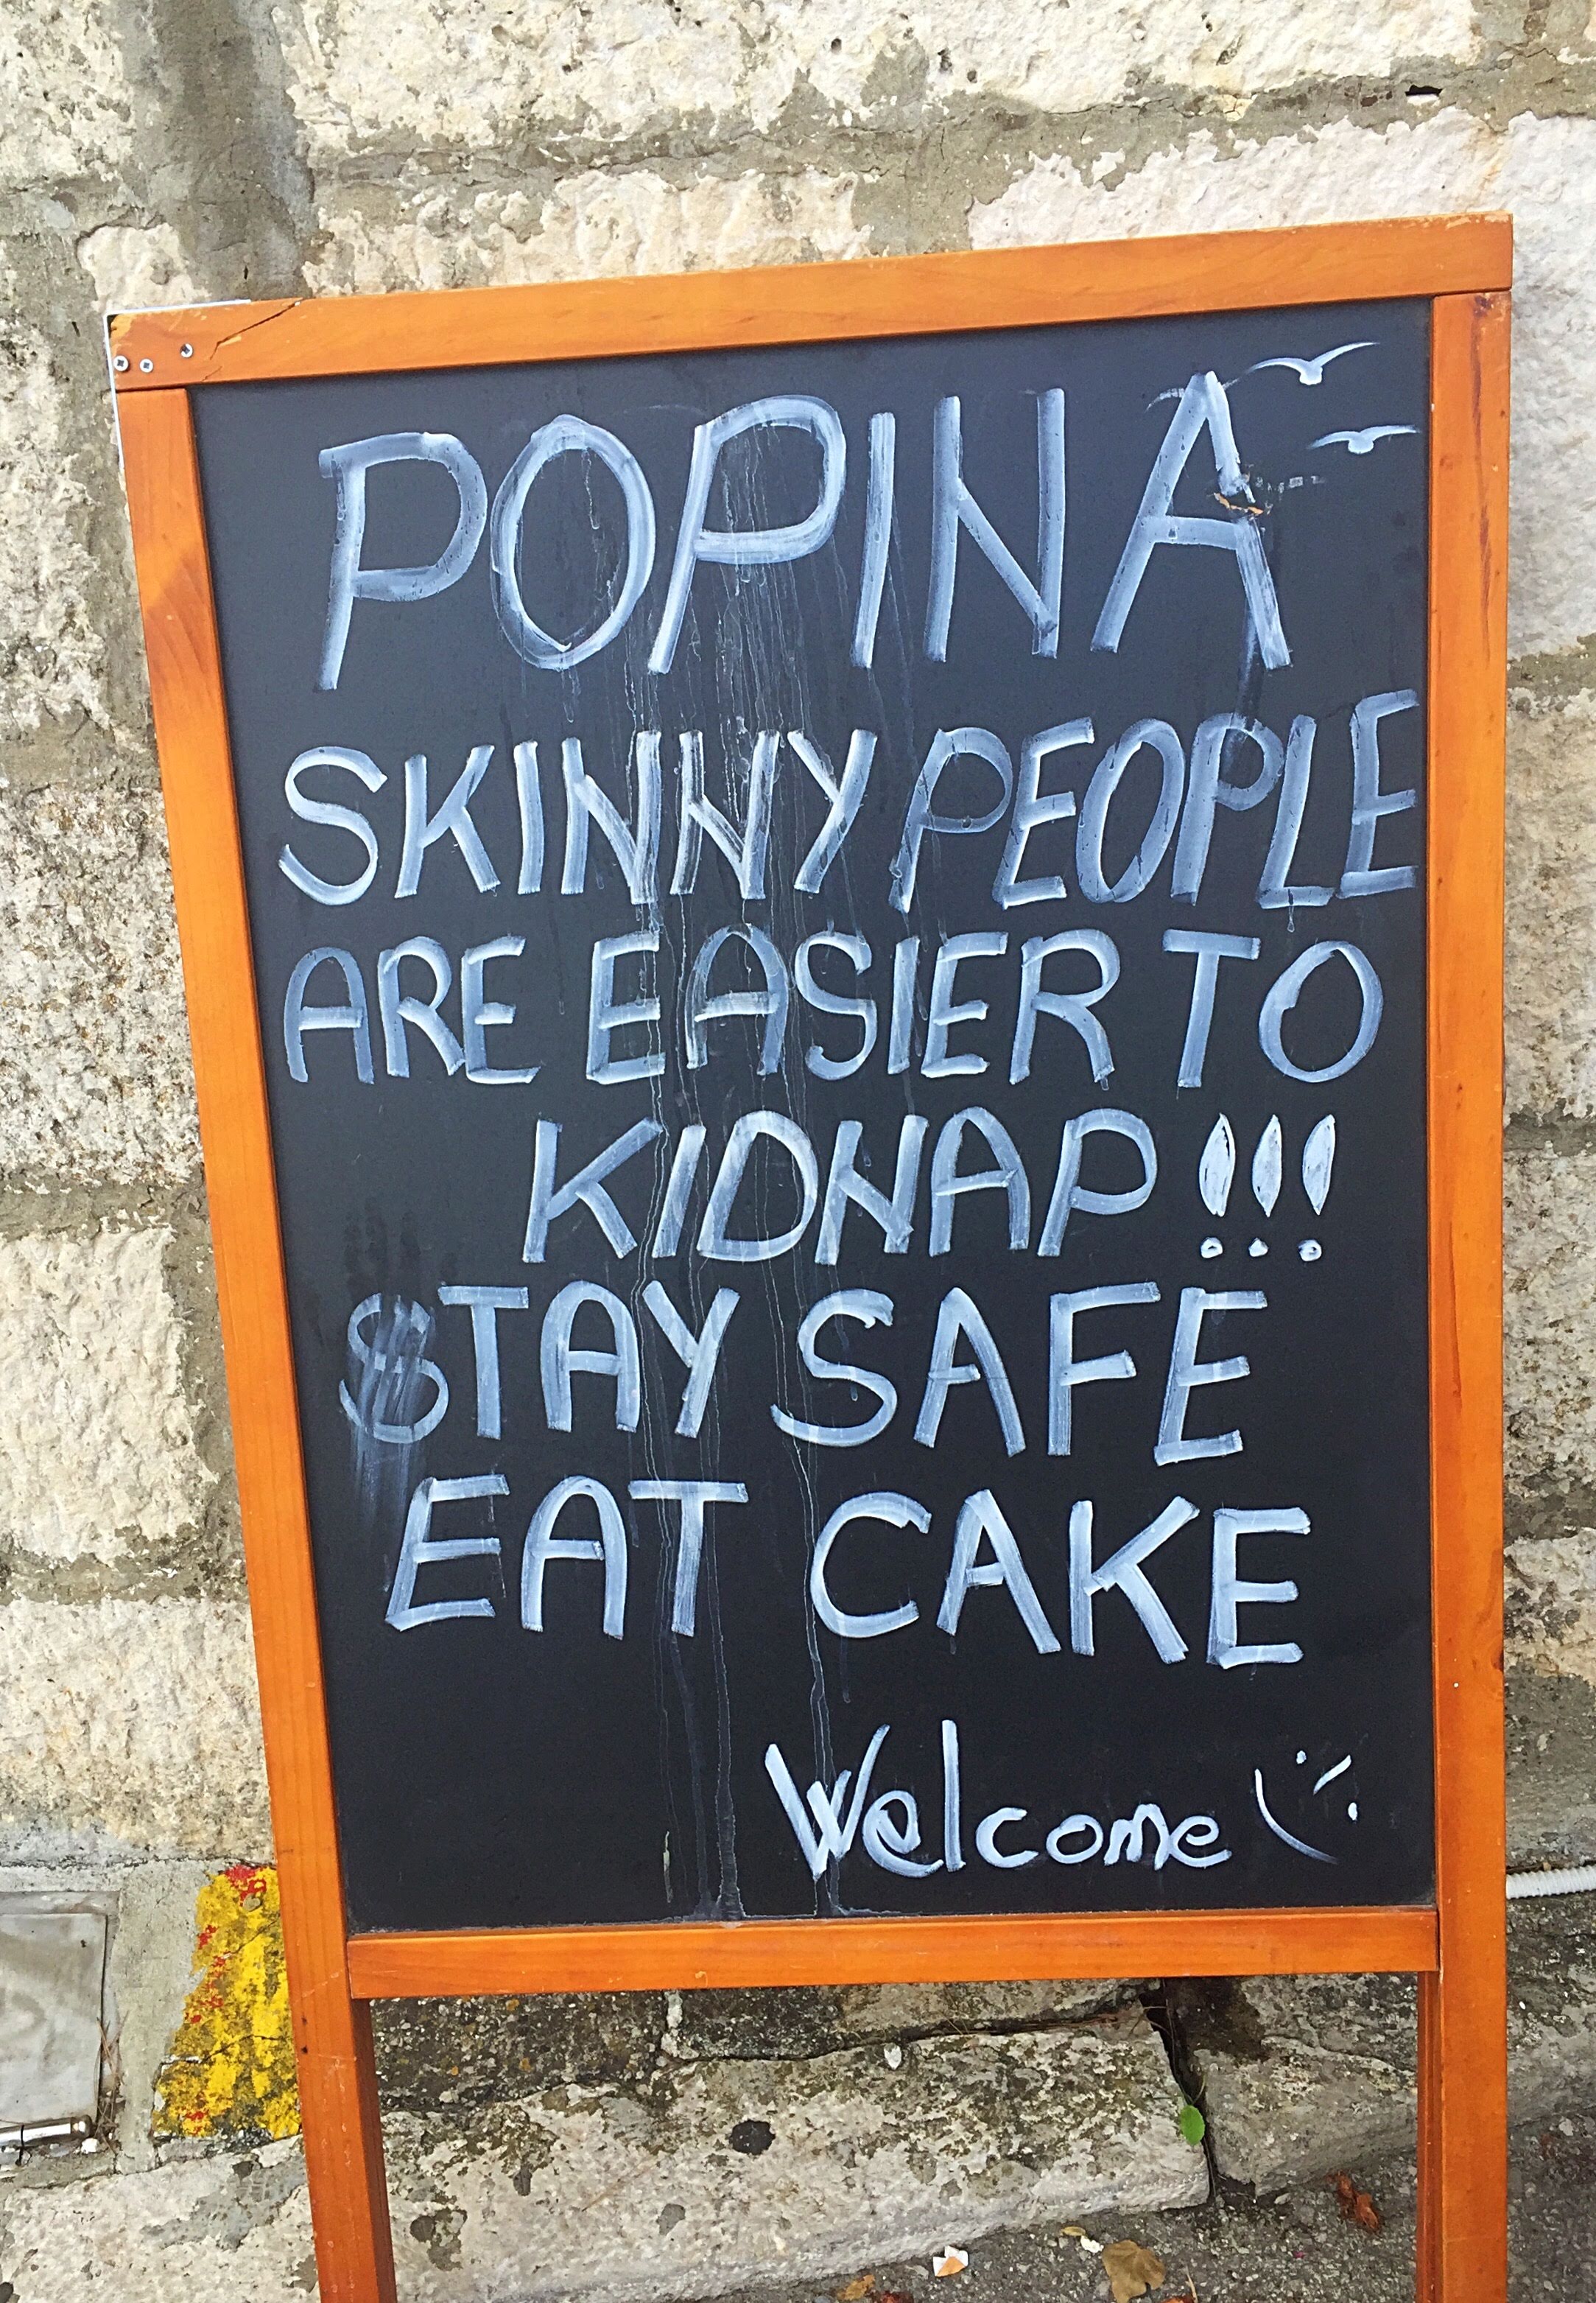 POPINA
SKINNY PEOPLE
ARE EASIER TO
KIDNAP !!!
STAY SAFE
EAT CAKE
Welcome